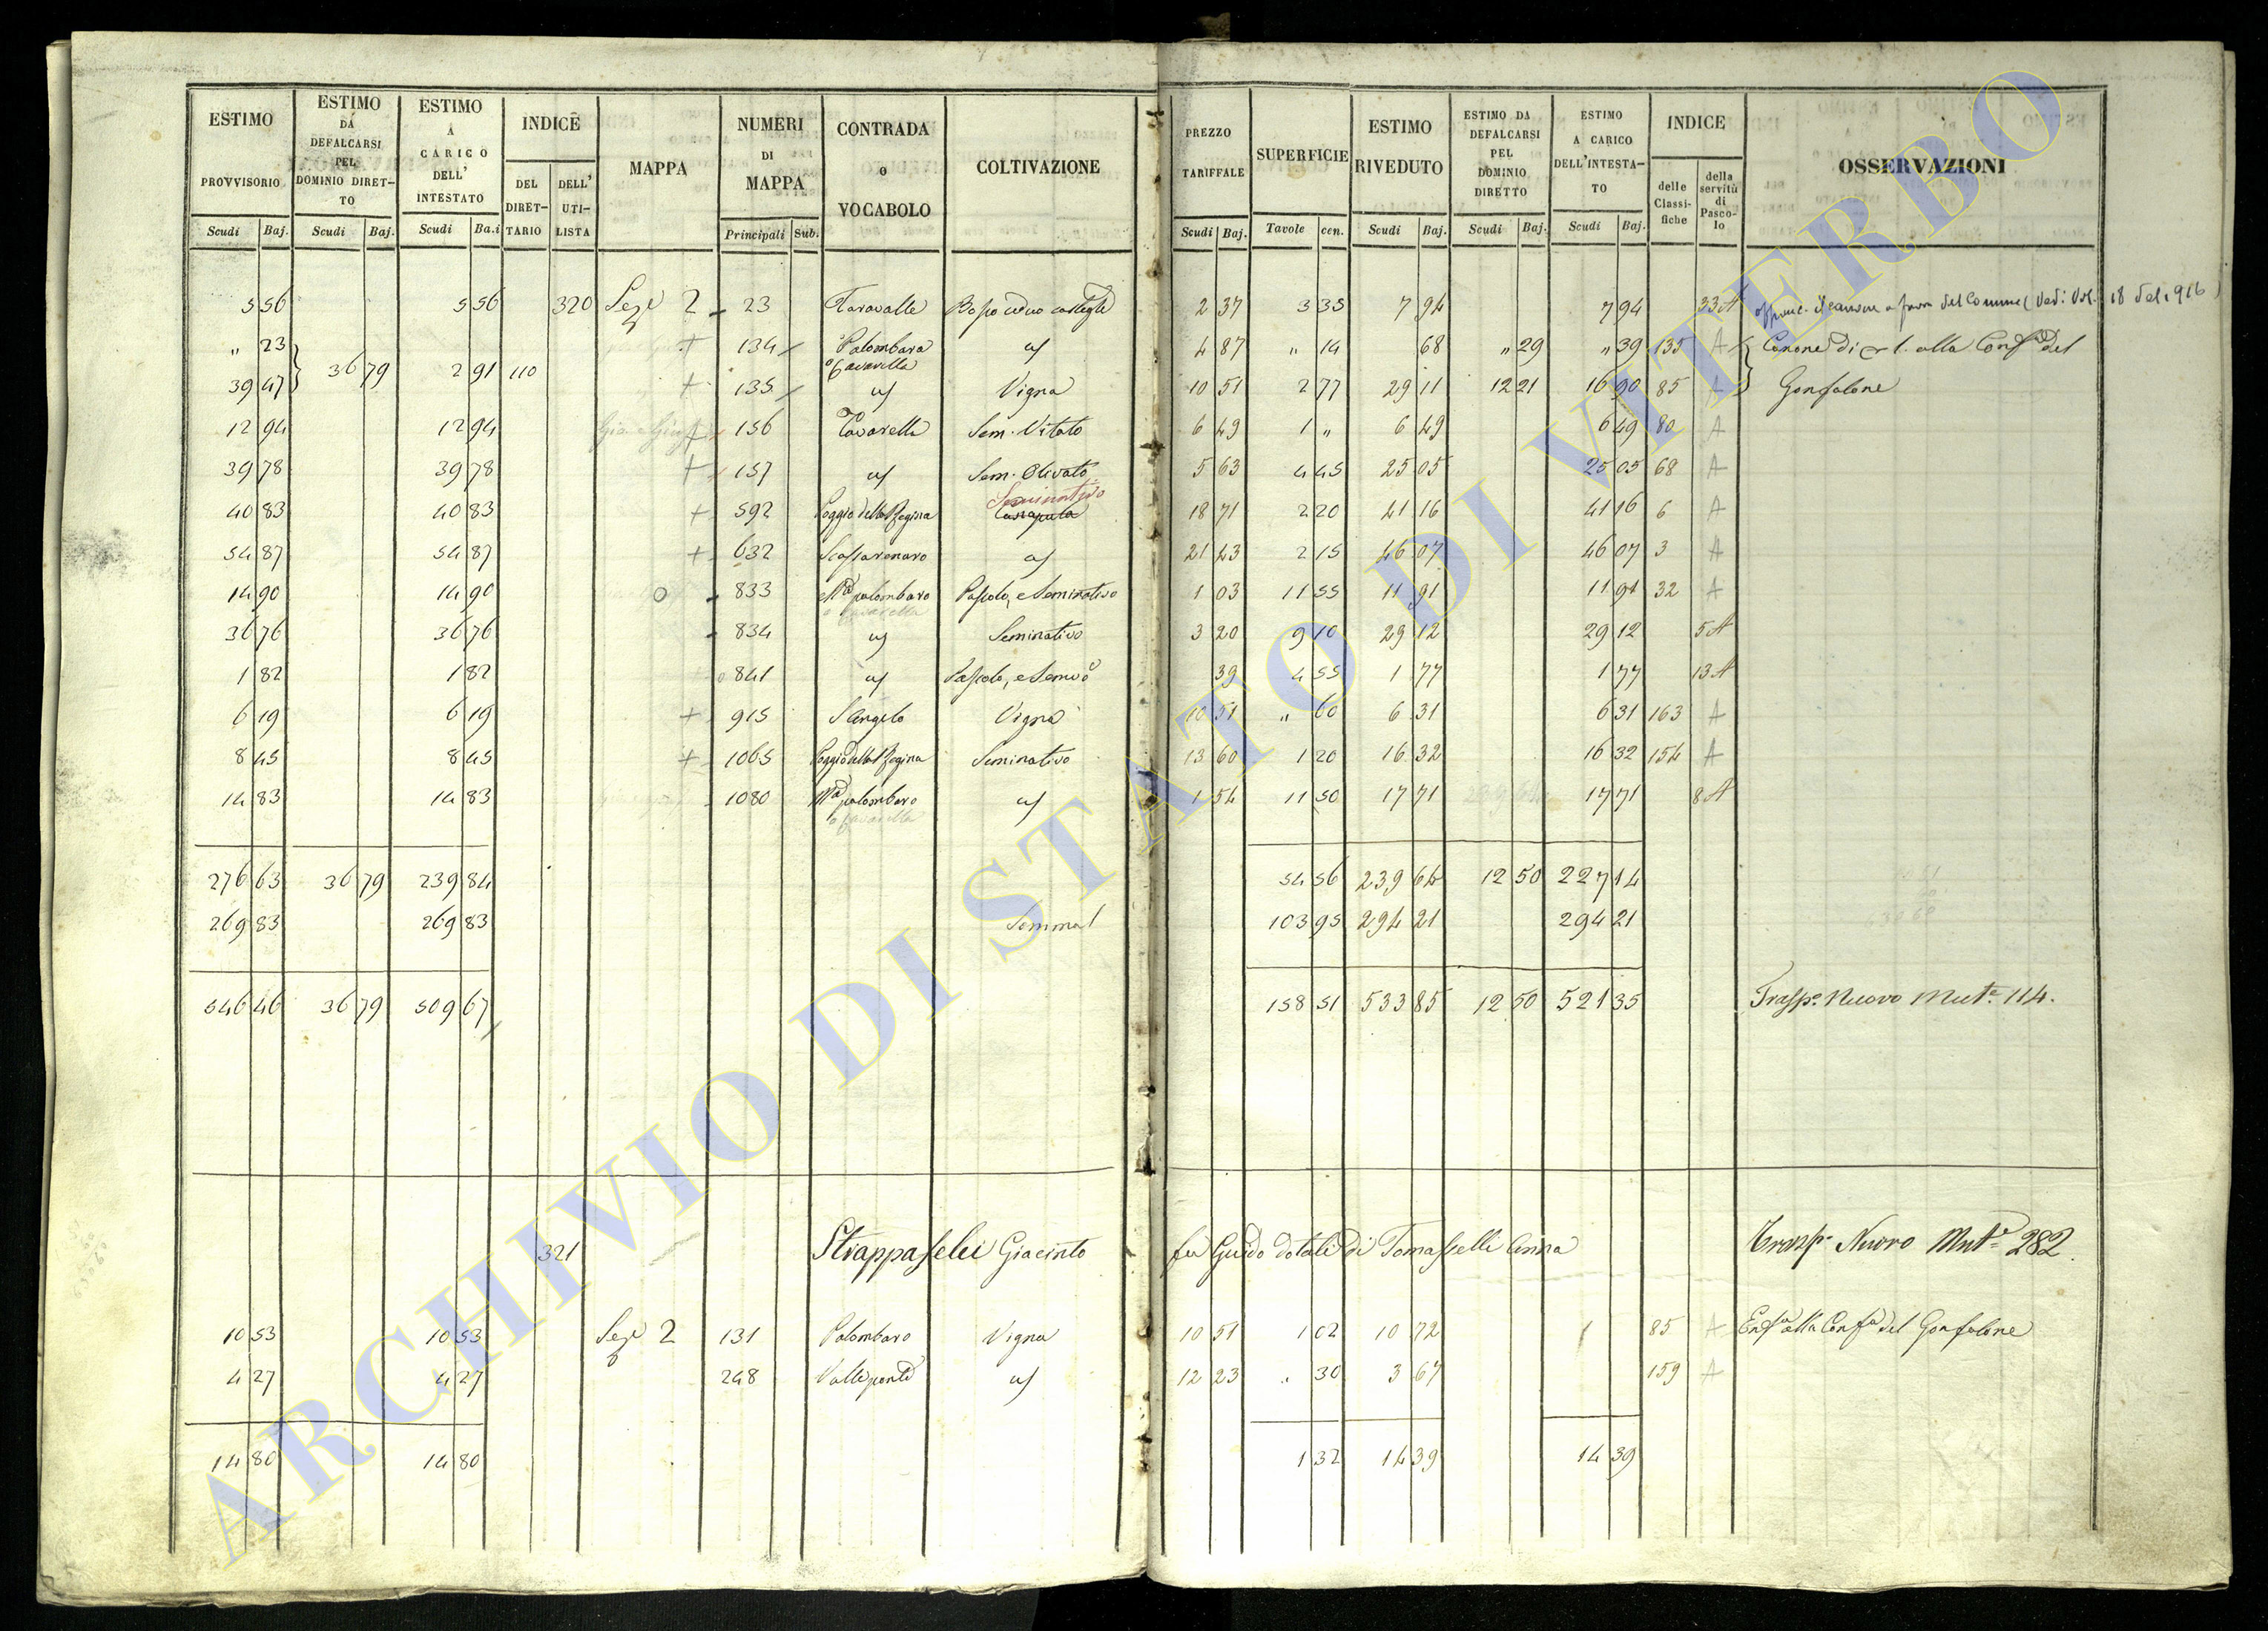 ESTIMO PROVVISORIO | ESTIMO DA DEFALCARSI PEL DOMINIO DIRETTO | ESTIMO A CARICO DELL' INTESTATO | INDICE | MAPPA | NUMERI DI MAPPA | CONTRADA o VOCABOLO | COLTIVAZIONE | PREZZO TARIFFALE | SUPERFICIE | ESTIMO RIVEDUTO | ESTIMO DA DEFALCARSI PEL DOMINIO DIRETTO | ESTIMO A CARICO DELL'INTESTATO | INDICE | OSSERVAZIONI
DEL DIRETTARIO | DELL' UTILISTA | delle Classifiche | della servitù di Pascolo
Scudi | Baj. | Scudi | Baj. | Scudi | Ba.i | Principali | Sub. | Scudi | Baj. | Tavole | cen. | Scudi | Baj. | Scudi | Baj. | Scudi | Baj.
5 56 | 5 56 | 320 | Seze 2 | 23 | 2 37 | 3 35 | 7 94 | 7 94 | 33 A | a favore del Comune (Vedi Vol. 18 del 1916)
" 23 | 134 | Palombara o Cavarella | 4 87 | " 14 | 68 | " 29 | " 39 | 135 | A | Canone di 1. alla Conf.a del
39 47 | 36 79 | 2 91 | 110 | 135 | Vigna | 10 51 | 2 77 | 29 11 | 12 21 | 16 90 | 85 | A | Gonfalone
12 94 | 12 94 | 156 | Cavarella | Sem. Vitato | 6 49 | 1 " | 6 49 | 6 49 | 80 | A
39 78 | 39 78 | 157 | Sem. Olivato | 5 63 | 4 45 | 25 05 | 25 05 | 68 | A
40 83 | 40 83 | 592 | Poggio della Regina | Seminativo | 18 71 | 2 20 | 41 16 | 41 16 | 6 | A
54 87 | 54 87 | 632 | 21 43 | 2 15 | 46 07 | 46 07 | 3 | A
14 90 | 14 90 | 833 | palombaro o Cavarella | Pascolo, e Seminativo | 1 03 | 11 55 | 11 91 | 11 91 | 32 | A
36 76 | 36 76 | 834 | Seminativo | 3 20 | 9 10 | 29 12 | 29 12 | 5 A
1 82 | 1 82 | 841 | Pascolo, e Semvo | 39 | 4 55 | 1 77 | 1 77 | 13 A
6 19 | 6 19 | 915 | S Angelo | Vigna | 10 51 | " 60 | 6 31 | 6 31 | 163 | A
8 45 | 8 45 | 1065 | Poggio della Regina | Seminativo | 13 60 | 1 20 | 16 32 | 16 32 | 154 | A
14 83 | 14 83 | 1080 | palombaro o Cavarella | 1 54 | 11 50 | 17 71 | 17 71 | 8 A
276 63 | 36 79 | 239 84 | 54 56 | 239 64 | 12 50 | 227 14
269 83 | 269 83 | 103 95 | 294 21 | 294 21
546 46 | 36 79 | 509 67 | 158 51 | 533 85 | 12 50 | 521 35 | Trasp.o Nuovo Mut.e 114.
321 | Strappafelci Giacinto fu Guido dotali di Tomasselli Anna | Trasp.o Nuovo Mut.e 282.
10 53 | 10 53 | Seze 2 | 131 | Palombaro | Vigna | 10 51 | 1 02 | 10 72 | 85 | A | Enf.a alla Conf.a del Gonfalone
4 27 | 4 27 | 248 | 12 23 | 30 | 3 67 | 159 | A
14 80 | 14 80 | 1 32 | 14 39 | 14 39
ARCHIVIO DI STATO DI VITERBO